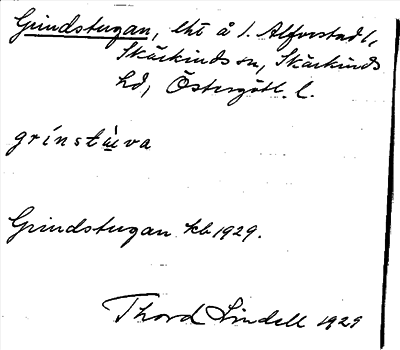 Grindstugan, lht å 1. Alforstad 1,
Skärkinds sn, Skärkinds
hd, Östergötl. l.
grinstùva
Grindstugan kb 1929.
Thord Lindell 1929